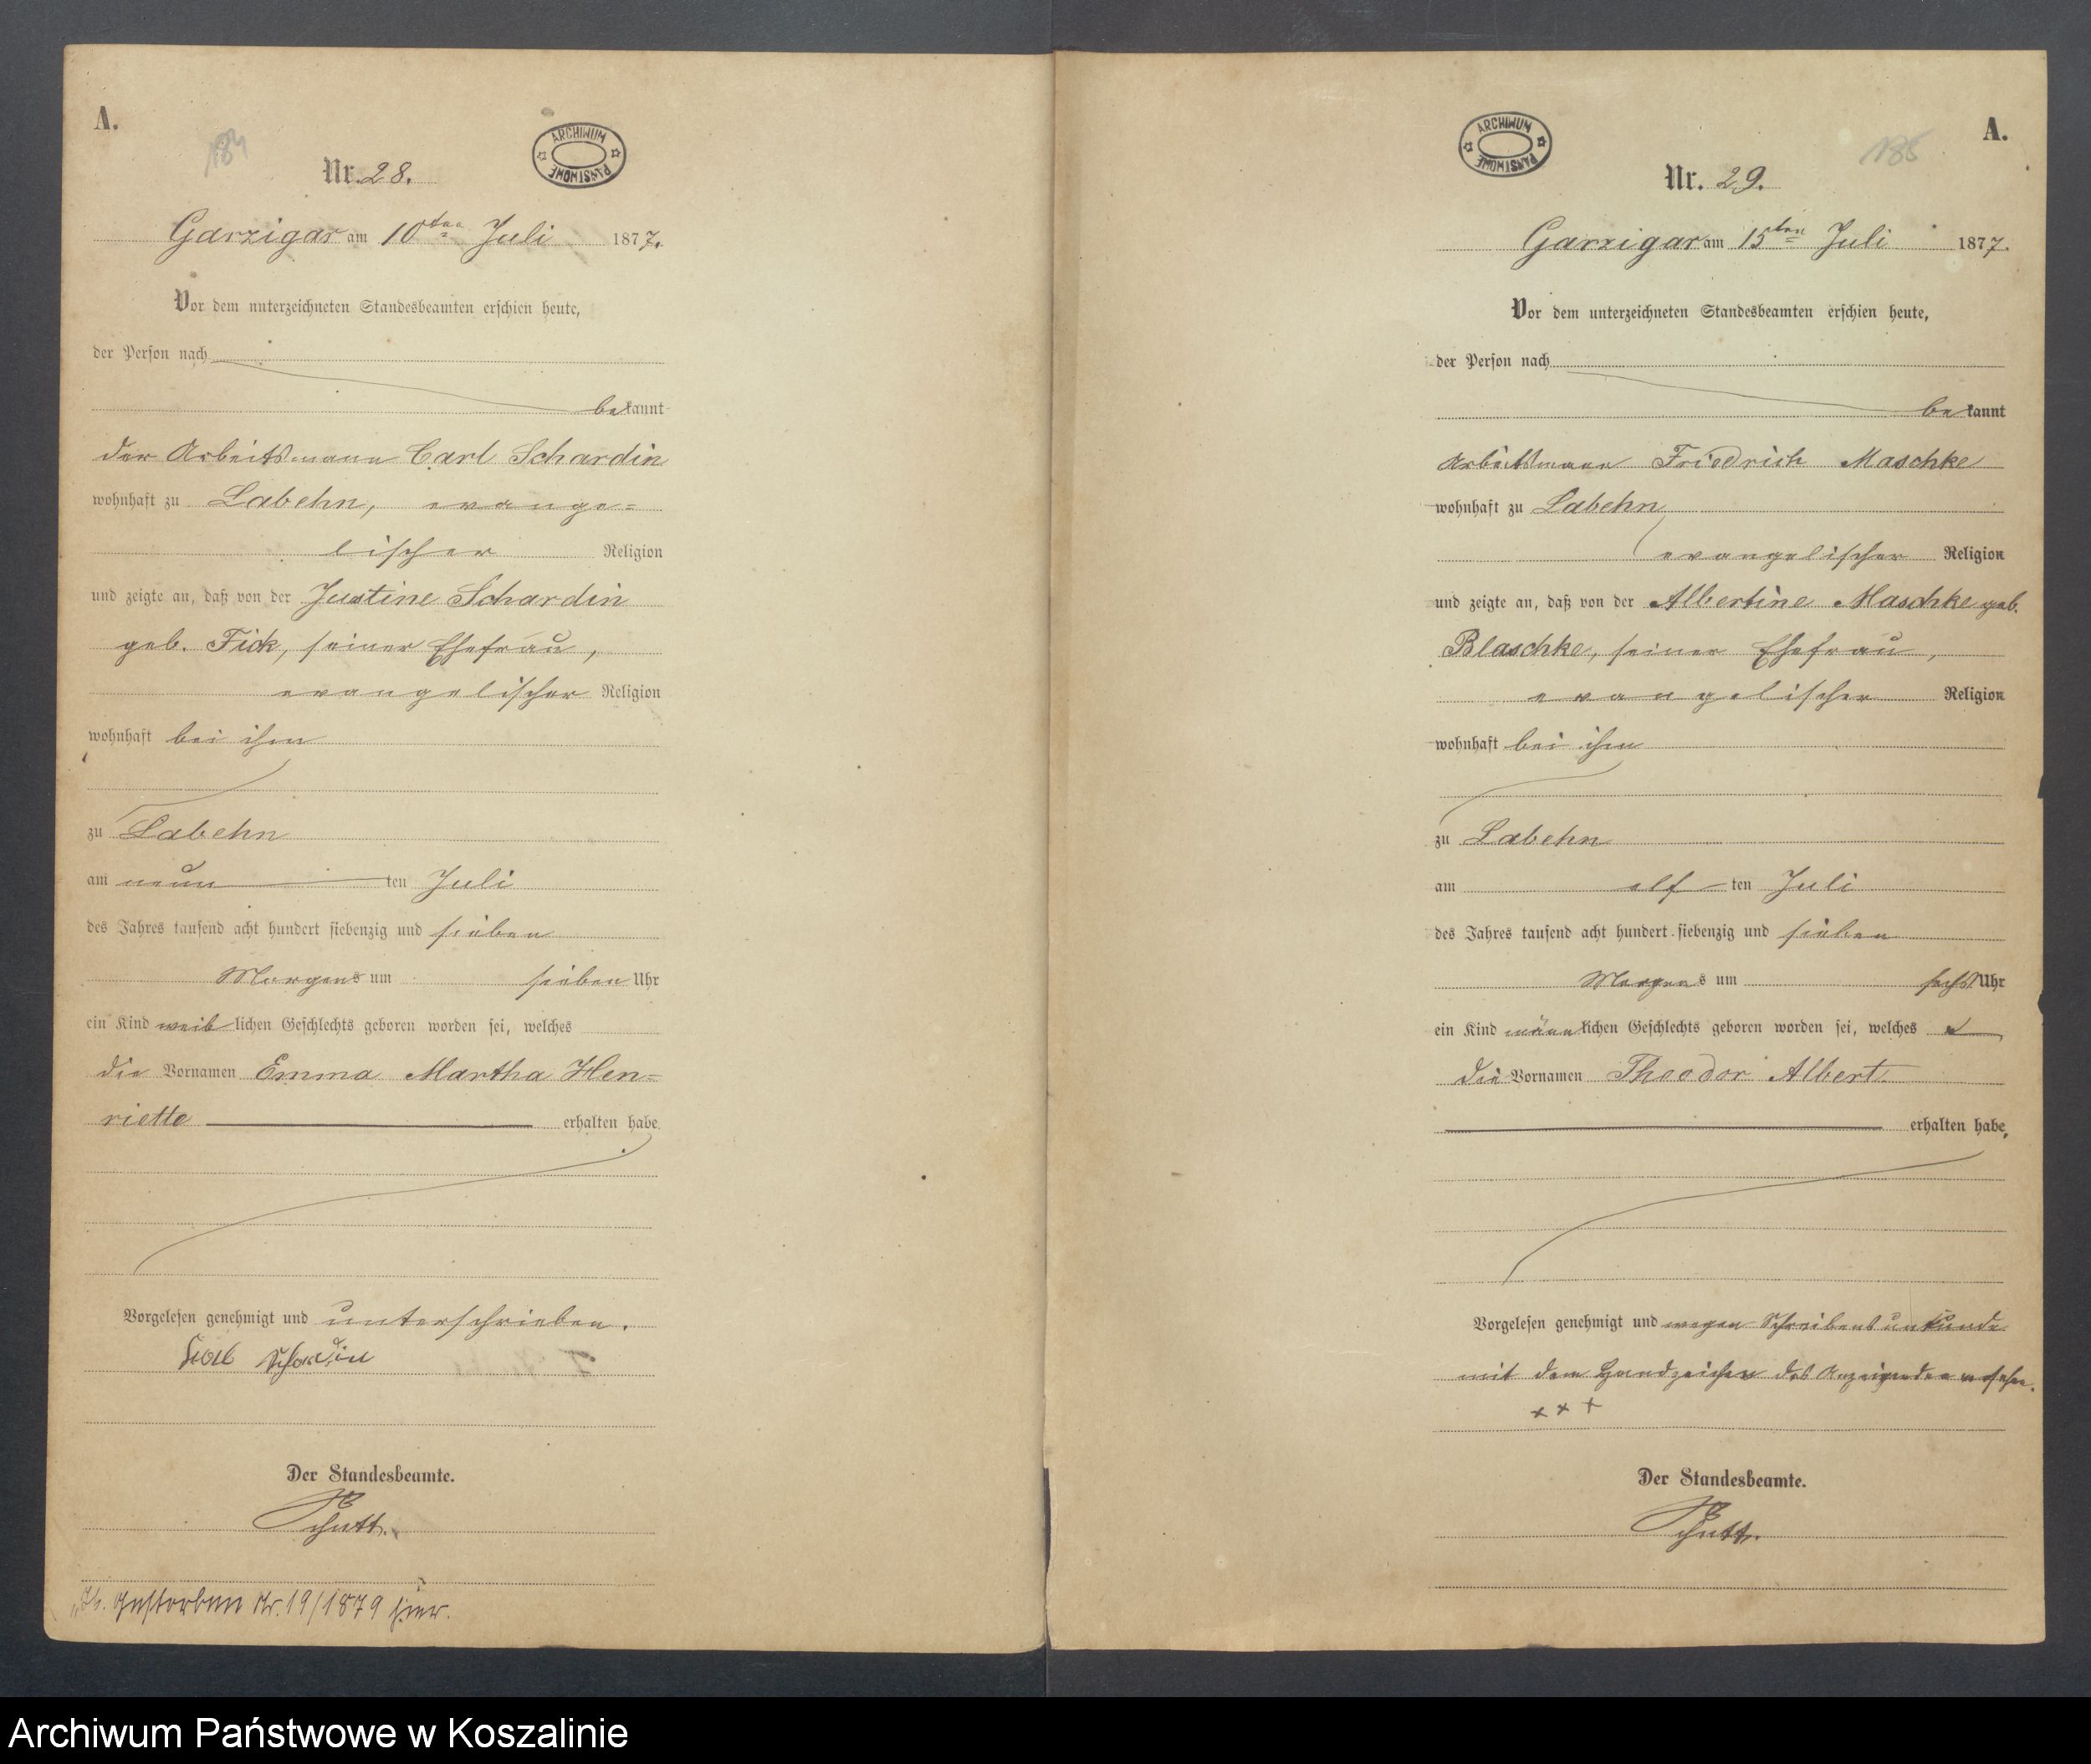 A.
184
Nr. 28.
ARCHIWUM PAŃSTWOWE
Garzigar am 10ten Juli 1877.
Vor dem unterzeichneten Standesbeamten erschien heute,
der Person nach
bekannt
der Arbeitsmann Carl Schardin
wohnhaft zu Labehn, evange=
lischer Religion
und zeigte an, daß von der Justine Schardin
geb. Fick, seiner Ehefrau,
evangelischer Religion
wohnhaft bei ihm
zu Labehn
am neun ten Juli
des Jahres tausend acht hundert siebenzig und sieben
Morgens um sieben Uhr
ein Kind weiblichen Geschlechts geboren worden sei, welches
die Vornamen Emma Martha Hen=
riette erhalten habe
Vorgelesen genehmigt und unterschrieben.
Karl Schardin
Der Standesbeamte.
gestorben Nr. 19/1879 hier.
A.
185
Nr. 29.
ARCHIWUM PAŃSTWOWE
Garzigar am 15ten Juli 1877.
Vor dem unterzeichneten Standesbeamten erschien heute,
der Person nach
bekannt
Arbeitsmann Friedrich Maschke
wohnhaft zu Labehn
evangelischer Religion
und zeigte an, daß von der Albertine Maschke geb.
Blaschke, seiner Ehefrau,
evangelischer Religion
wohnhaft bei ihm
zu Labehn
am elf ten Juli
des Jahres tausend acht hundert siebenzig und sieben
Morgens um sechs Uhr
ein Kind männlichen Geschlechts geboren worden sei, welches
die Vornamen Theodor Albert
erhalten habe,
Vorgelesen genehmigt und wegen Schreibensunkunde
mit dem Handzeichen des Anzeigenden versehen.
+ + +
Der Standesbeamte.
Archiwum Państwowe w Koszalinie